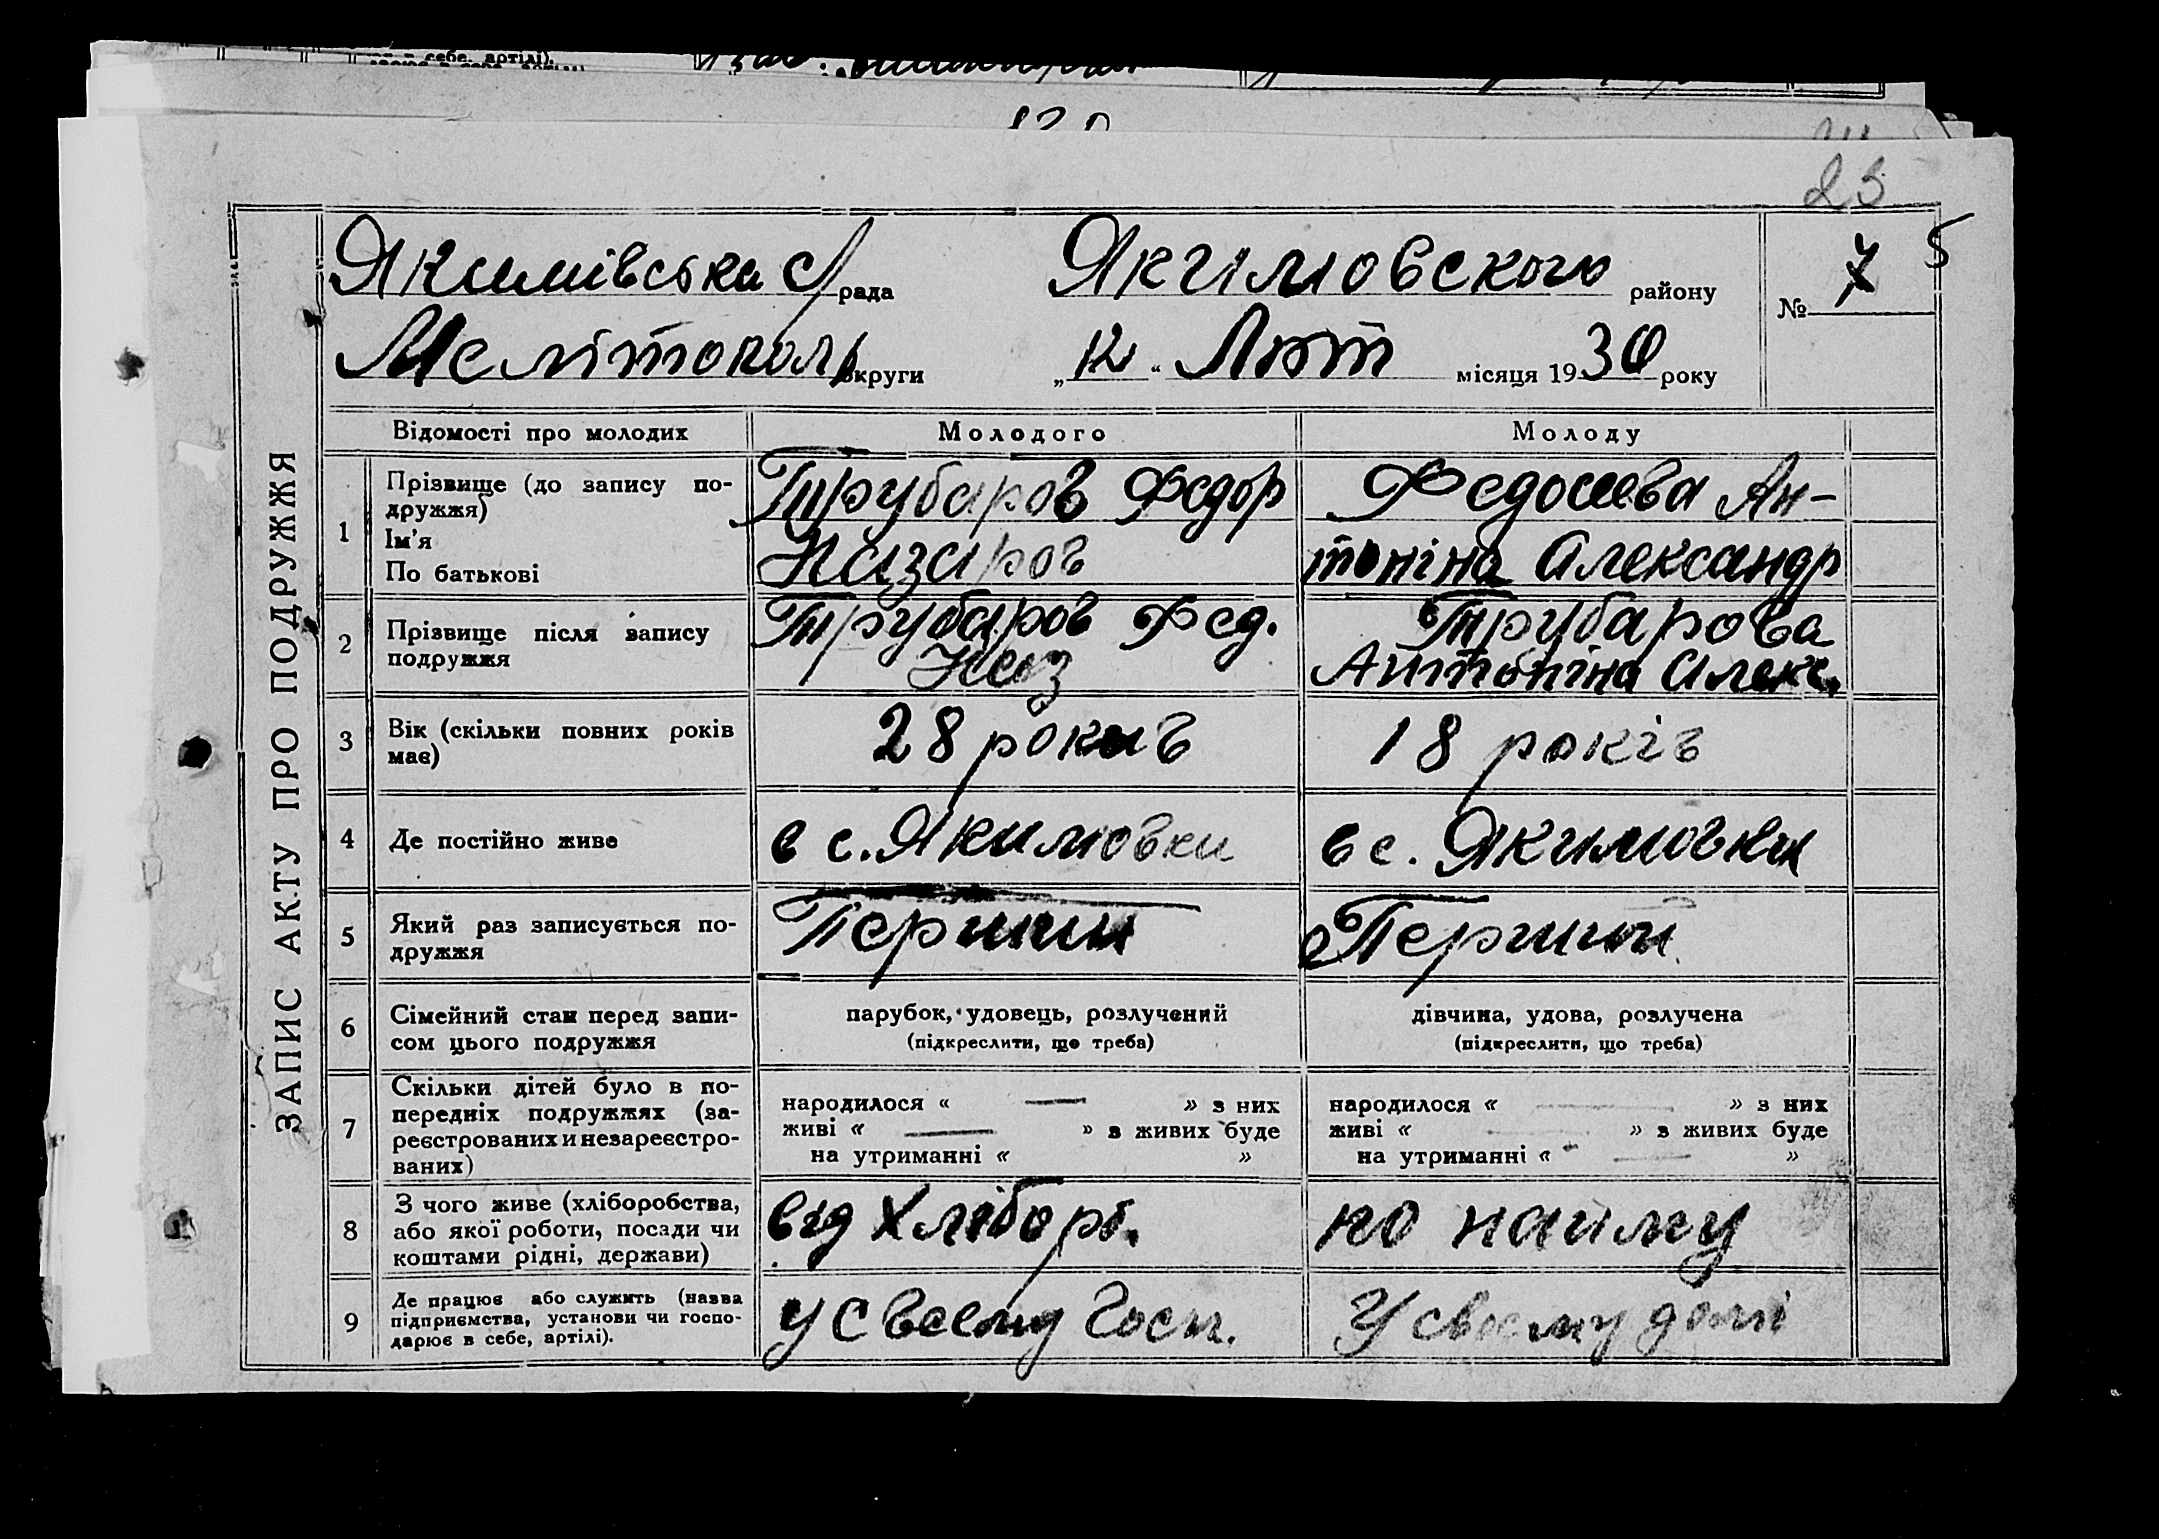 23
Якимівська С/рада Якимовского району № 7 5
Мелітополь округи „12“ Лют місяця 1930 року
ЗАПИС АКТУ ПРО ПОДРУЖЖЯ
Відомості про молодих Молодого Молоду
1 Прізвище (до запису по-
дружжя)
Ім'я
По батькові
Трубаров Федор
Назаров
Федосеева Ан-
тоніна Александр
2 Прізвище після запису
подружжя
Трубаров Фед.
Наз
Трубарова
Антоніна Алекс.
3 Вік (скільки повних років
має)
28 рокив
18 років
4 Де постійно живе
в с. Якимовки
в с. Якимовки
5 Який раз записується по-
дружжя
Першии
Перший
6 Сімейний стан перед запи-
сом цього подружжя
парубок, удовець, розлучений
(підкреслити, що треба)
дівчина, удова, розлучена
(підкреслити, що треба)
7 Скільки дітей було в по-
передніх подружжях (за-
реєстрованих и незареєстро-
ваних)
народилося « — » з них
живі « — » з живих буде
на утриманні « »
народилося « — » з них
живі « — » з живих буде
на утриманні « — »
8 З чого живе (хліборобства,
або якої роботи, посади чи
коштами рідні, держави)
від Хлібороб.
по найму
9 Де працює або служить (назва
підприємства, установи чи госпо-
дарює в себе, артілі).
у своєму Госп.
У своєму домі